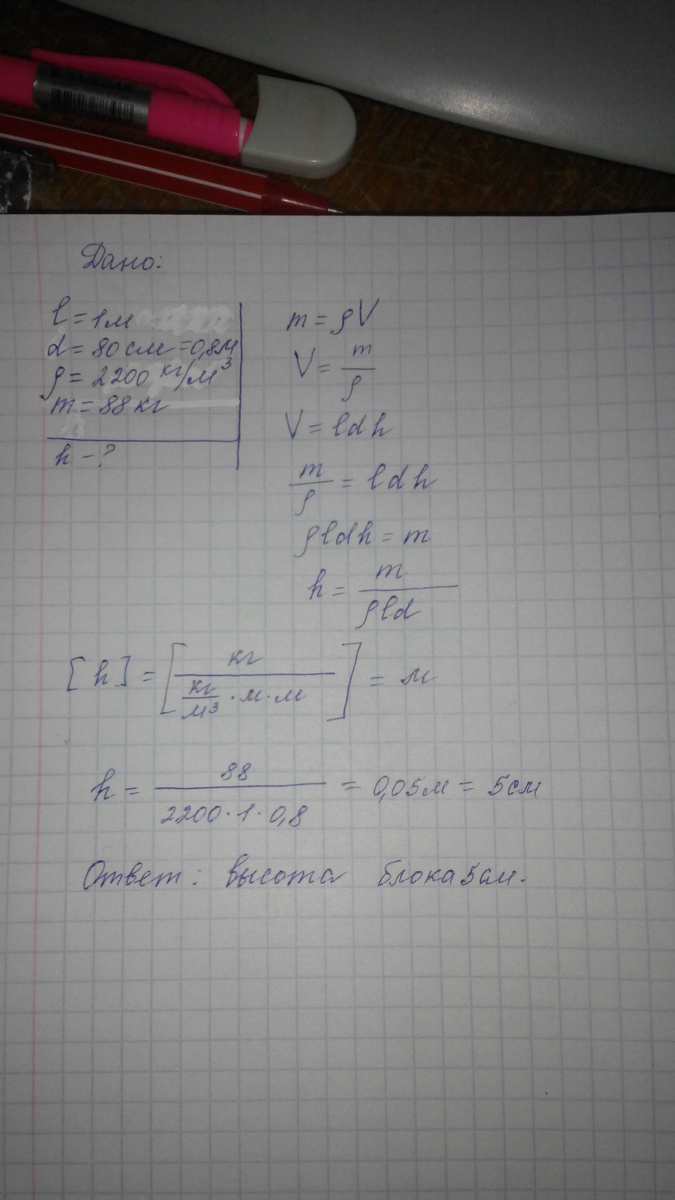 Дано:
l = 1м
d = 80 см = 0,8м
ρ = 2200 кг/м³
m = 88 кг
h - ?
m = ρV
V = m/ρ
V = ldh
m/ρ = ldh
ρldh = m
h = m/ρld
[h] = [кг / (кг/м³ · м · м)] = м
h = 88 / (2200 · 1 · 0,8) = 0,05м = 5см
Ответ: высота блока 5 см.